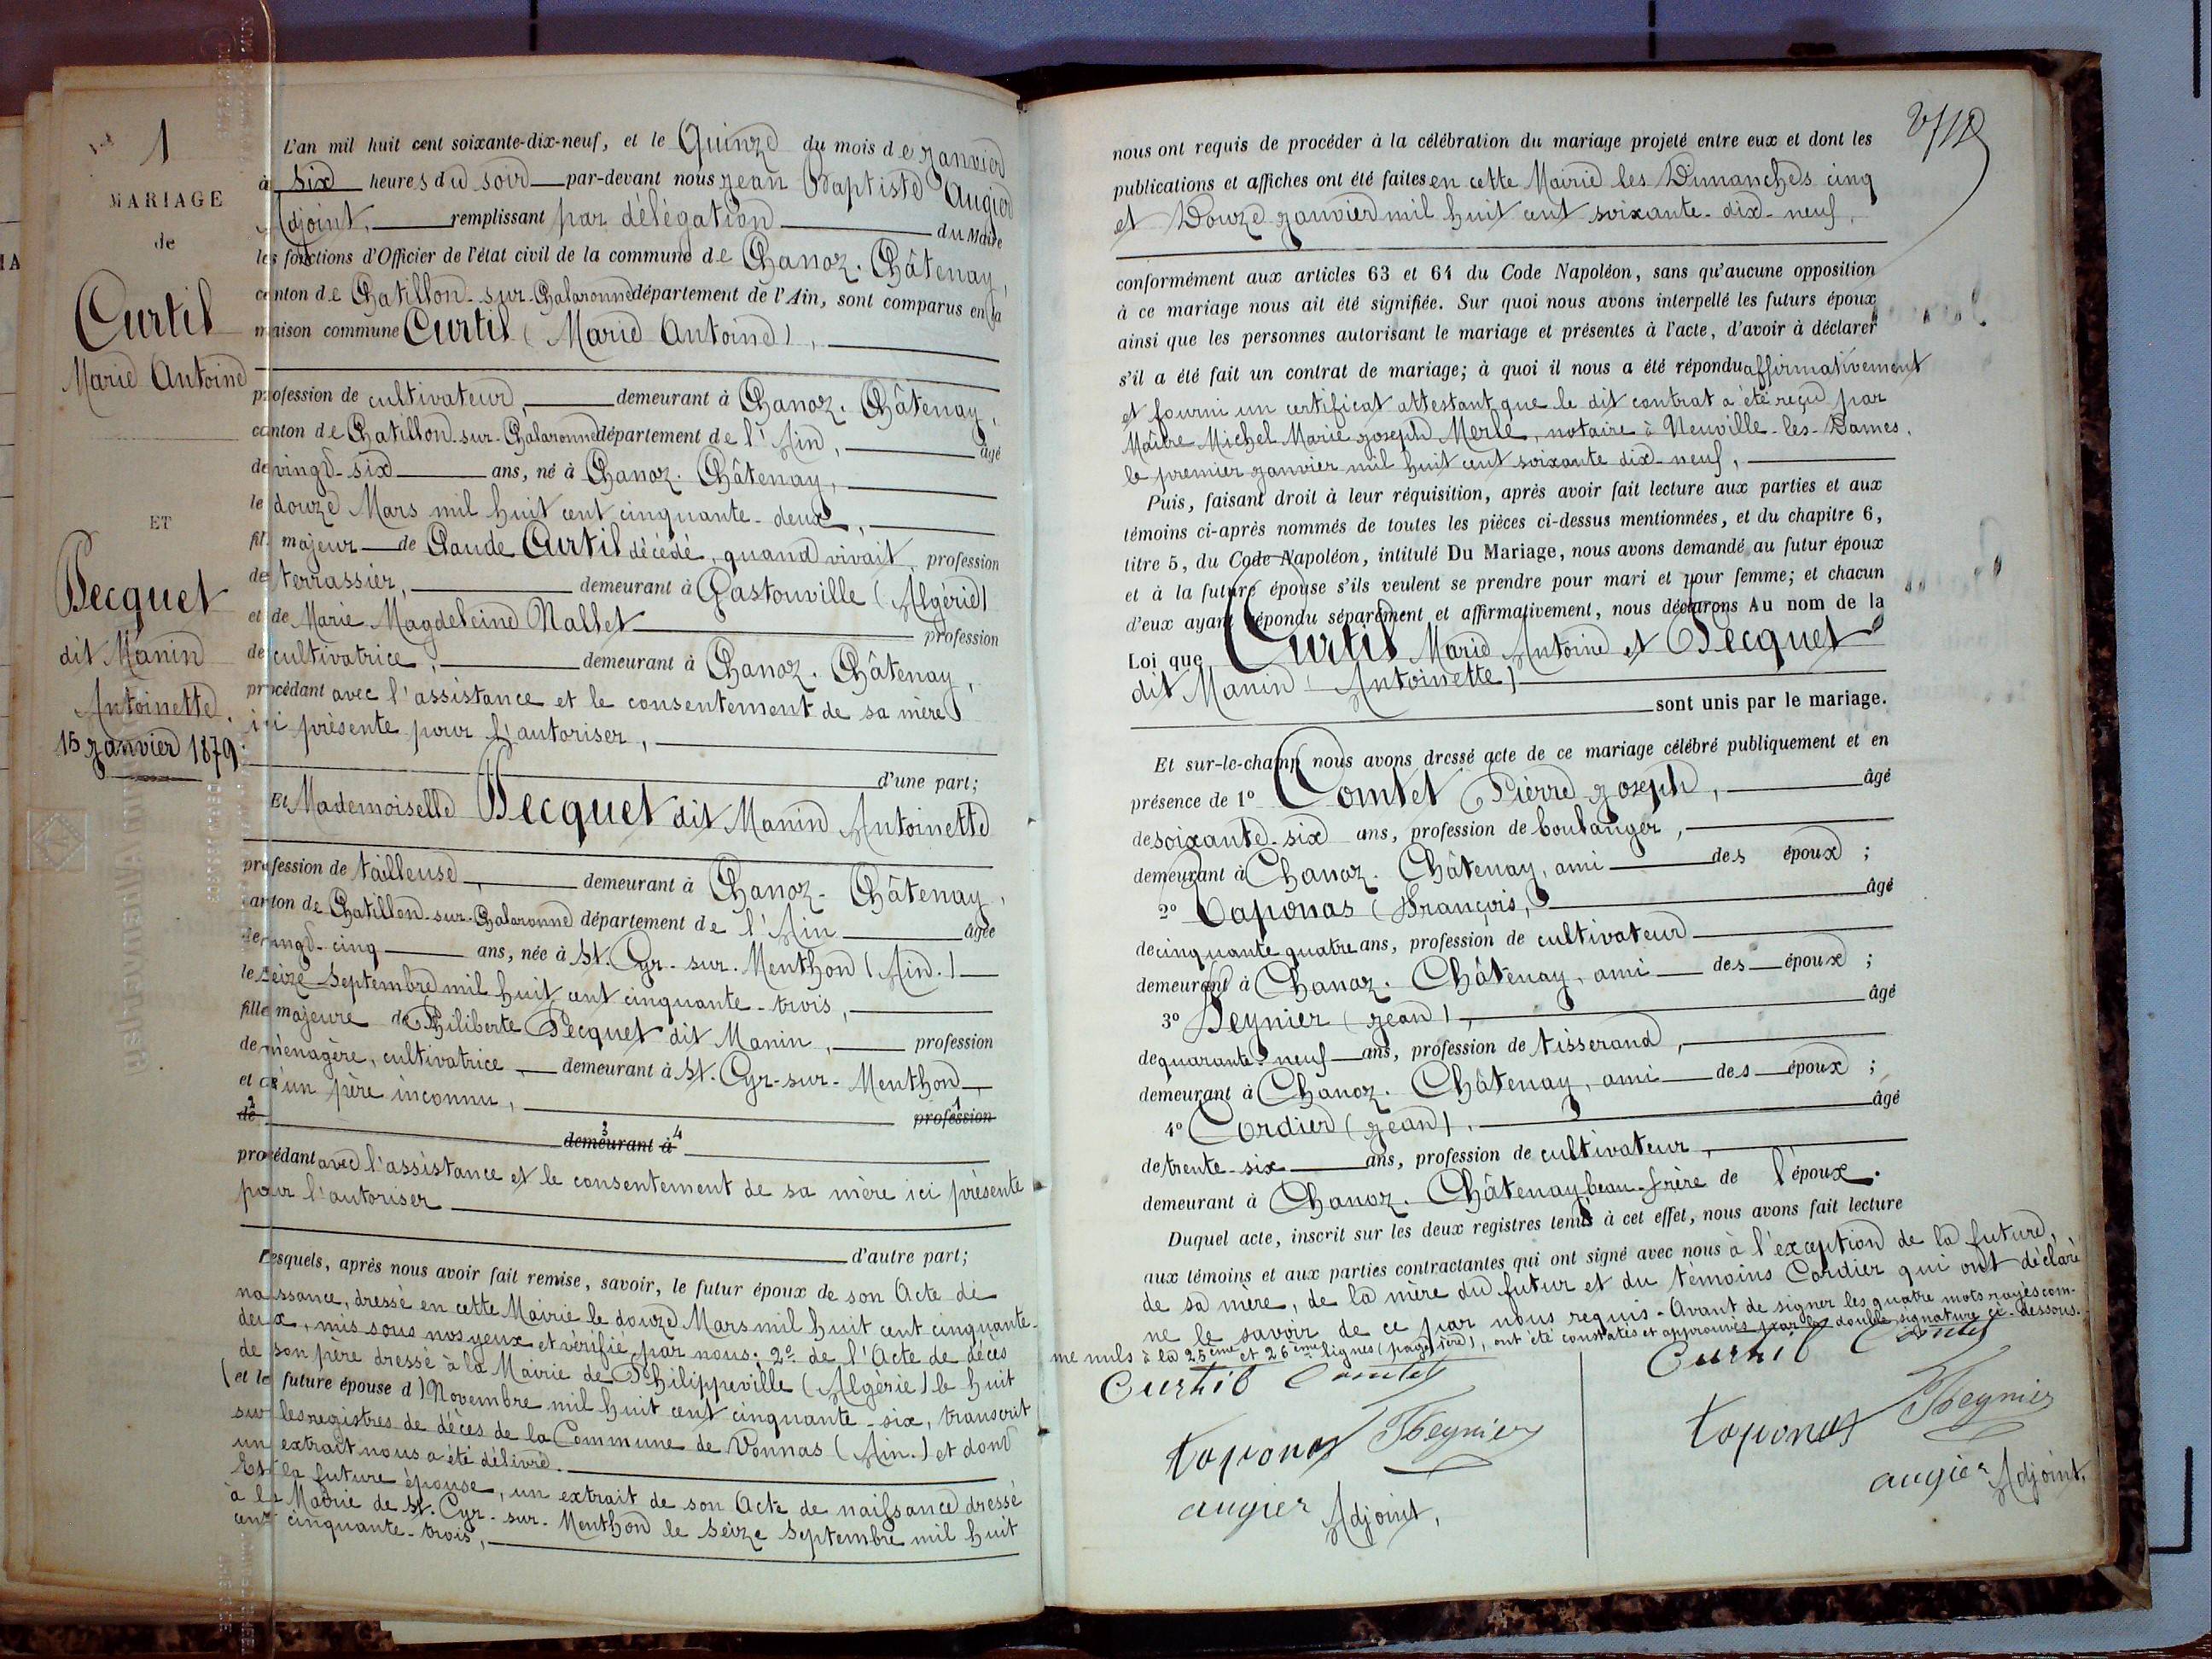 1
MARIAGE
de
Curtil
Marie Antoine
ET
Pecquet
dit Manin
Antoinette.
15 Janvier 1879.
L'an mil huit cent soixante-dix-neuf, et le Quinze du mois de Janvier
à six heures du soir par-devant nous Jean Baptiste Augier
Adjoint, remplissant par délégation du Maire
les fonctions d'Officier de l'état civil de la commune de Chanoz-Châtenay,
canton de Chatillon-sur-Chalaronne département de l'Ain, sont comparus en la
maison commune Curtil (Marie Antoine),
profession de cultivateur, demeurant à Chanoz-Châtenay,
canton de Chatillon-sur-Chalaronne département de l'Ain, âgé
de vingt-six ans, né à Chanoz-Châtenay,
le douze Mars mil huit cent cinquante-deux,
fils majeur de Claude Curtil décédé, quand vivait, profession
de terrassier, demeurant à Gastonville (Algérie)
et de Marie Magdeleine Nallet profession
de cultivatrice, demeurant à Chanoz-Châtenay,
procédant avec l'assistance et le consentement de sa mère
ici présente pour l'autoriser,
d'une part;
Et Mademoiselle Pecquet dit Manin Antoinette
profession de tailleuse, demeurant à Chanoz-Châtenay,
canton de Chatillon-sur-Chalaronne département de l'Ain âgée
de vingt-cinq ans, née à St. Cyr-sur-Menthon (Ain.)
le seize Septembre mil huit cent cinquante-trois,
fille majeure de Philiberte Pecquet dit Manin, profession
de ménagère, cultivatrice demeurant à St. Cyr-sur-Menthon
et d'un père inconnu,
de profession
demeurant à
procédant avec l'assistance et le consentement de sa mère ici présente
pour l'autoriser
d'autre part;
Lesquels, après nous avoir fait remise, savoir, le futur époux de son Acte de
naissance, dressé en cette Mairie le douze Mars mil huit cent cinquante-
deux, mis sous nos yeux et vérifié par nous. 2º. de l'Acte de décès
de son père dressé à la Mairie de Philippeville (Algérie) le huit
(et le future épouse d) Novembre mil huit cent cinquante-six, transcrit
sur les registres de décès de la Commune de Vonnas (Ain.) et dont
un extrait nous a été délivré.
Et la future épouse, un extrait de son Acte de naissance dressé
à la Mairie de St. Cyr-sur-Menthon le seize Septembre mil huit
cent cinquante-trois,
nous ont requis de procéder à la célébration du mariage projeté entre eux et dont les
publications et affiches ont été faites en cette Mairie les Dimanches cinq
et Douze Janvier mil huit cent soixante-dix-neuf,
conformément aux articles 63 et 64 du Code Napoléon, sans qu'aucune opposition
à ce mariage nous ait été signifiée. Sur quoi nous avons interpellé les futurs époux
ainsi que les personnes autorisant le mariage et présentes à l'acte, d'avoir à déclarer
s'il a été fait un contrat de mariage; à quoi il nous a été répondu affirmativement
et fourni un certificat attestant que le dit contrat a été reçu par
Maître Michel Marie Joseph Merle, notaire à Neuville-les-Dames,
le premier Janvier mil huit cent soixante dix-neuf,
Puis, faisant droit à leur réquisition, après avoir fait lecture aux parties et aux
témoins ci-après nommés de toutes les pièces ci-dessus mentionnées, et du chapitre 6,
titre 5, du Code Napoléon, intitulé Du Mariage, nous avons demandé au futur époux
et à la future épouse s'ils veulent se prendre pour mari et pour femme; et chacun
d'eux ayant répondu séparément et affirmativement, nous déclarons Au nom de la
Loi que Curtil Marie Antoine et Pecquet
dit Manin (Antoinette)
sont unis par le mariage.
Et sur-le-champ nous avons dressé acte de ce mariage célébré publiquement et en
présence de 1º Comtet (Pierre Joseph, âgé
de soixante-six ans, profession de boulanger,
demeurant à Chanoz-Châtenay, ami des époux;
2º Taponas (François, âgé
de cinquante quatre ans, profession de cultivateur
demeurant à Chanoz-Châtenay, ami des époux;
3º Peynier (Jean), âgé
de quarante-neuf ans, profession de tisserand,
demeurant à Chanoz-Châtenay, ami des époux;
4º Cordier (Jean), âgé
de trente-six ans, profession de cultivateur,
demeurant à Chanoz-Châtenay beau-frère de l'époux.
Duquel acte, inscrit sur les deux registres tenus à cet effet, nous avons fait lecture
aux témoins et aux parties contractantes qui ont signé avec nous à l'exception de la future,
de sa mère, de la mère du futur et du témoins Cordier qui ont déclaré
ne le savoir de ce par nous requis. Avant de signer les quatre mots rayés com-
me nuls à la 25ème et 26ème lignes (page 1ère), ont été constatés et approuvés par la double signature ci-dessous.
Curtil Comtet
Curtil Comtet
taponas Peynier
taponas Peynier
augier Adjoint,
augier Adjoint,